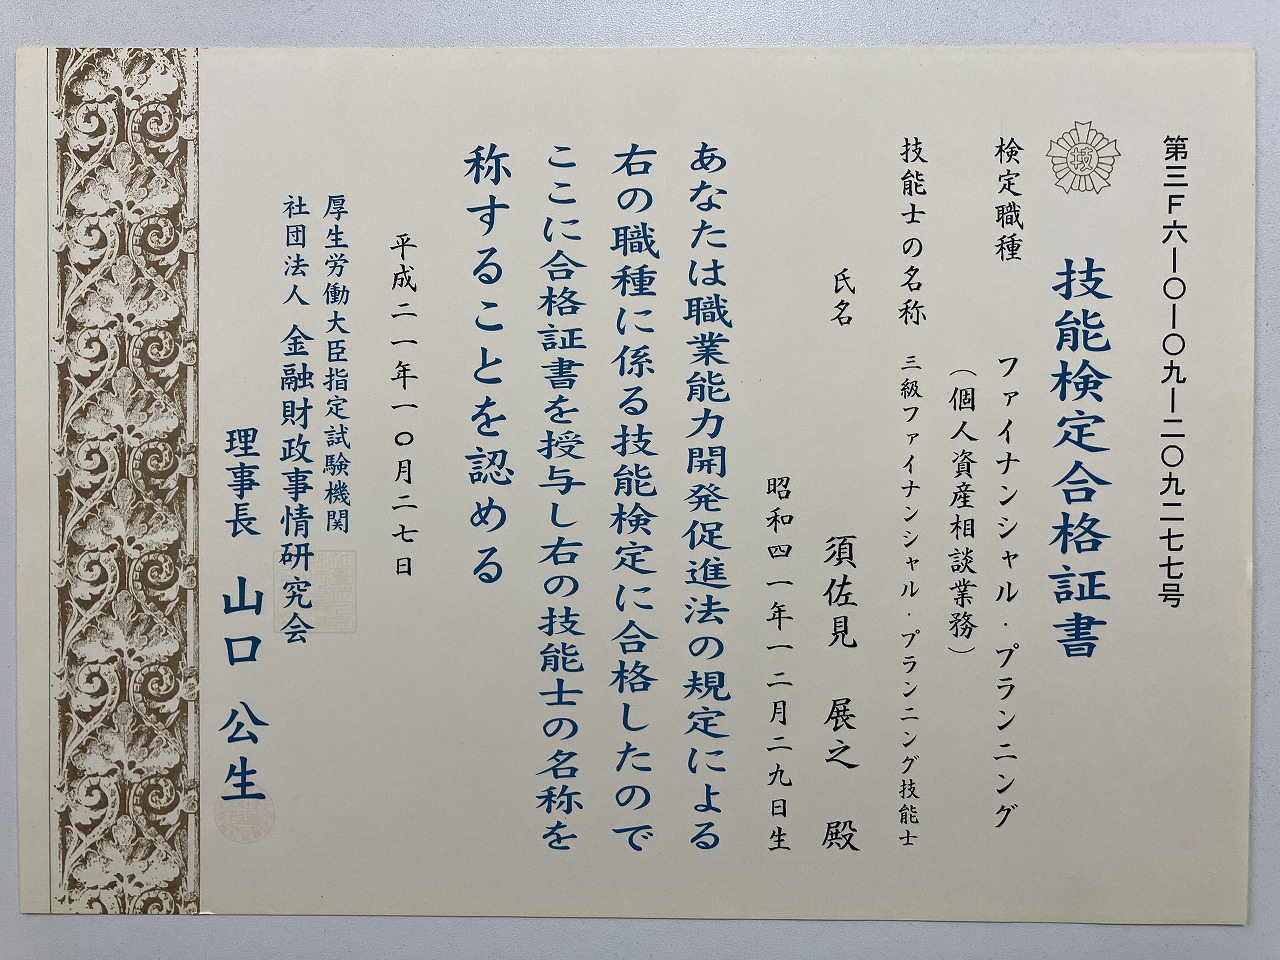 第三F六―〇―〇九―二〇九二七七号
技
技能検定合格証書
検定職種　ファイナンシャル・プランニング
（個人資産相談業務）
技能士の名称　三級ファイナンシャル・プランニング技能士
氏名　須佐見　展之　殿
昭和四一年一二月二九日生
あなたは職業能力開発促進法の規定による
右の職種に係る技能検定に合格したので
ここに合格証書を授与し右の技能士の名称を
称することを認める
平成二一年一〇月二七日
厚生労働大臣指定試験機関
社団法人　金融財政事情研究会
理事長　山口　公生